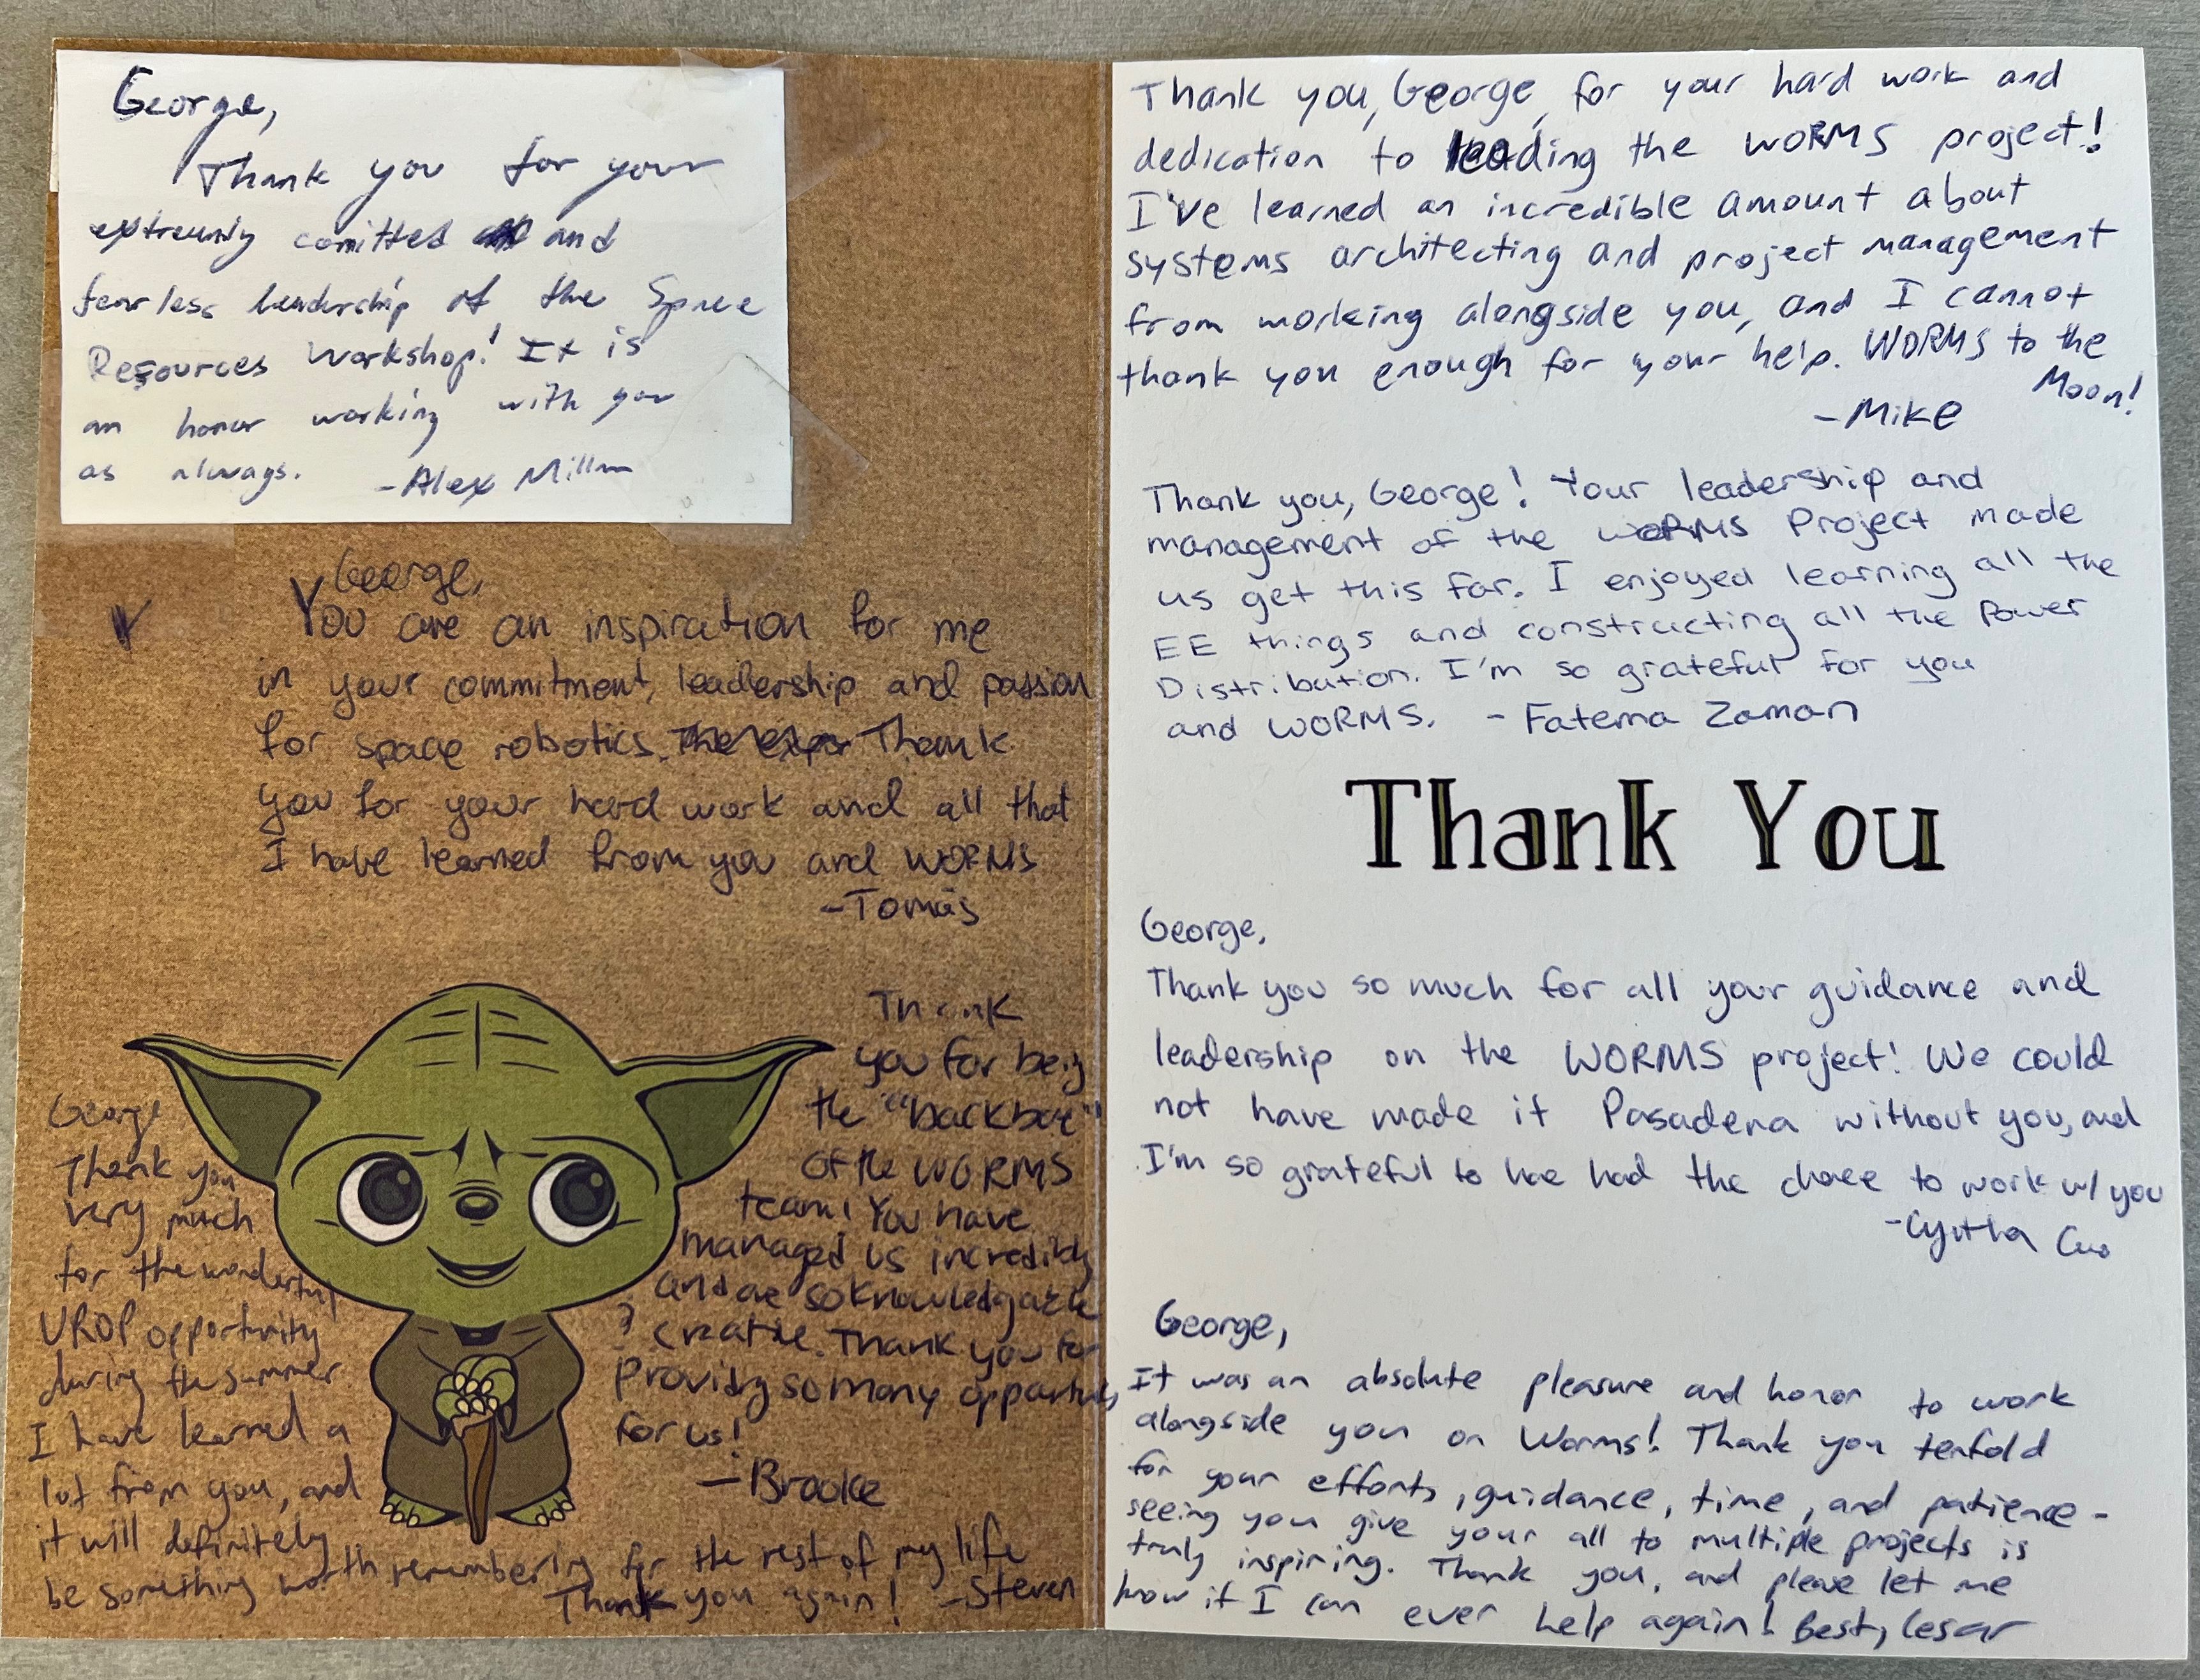 George,
Thank you for your
comitted and
fearless leadership of the Space
Resources Workshop! It is
an honor working with you
as always. -Alex
George,
You are an inspiration for me
in your commitment, leadership and passion
for space robotics. The Thank
you for your hard work and all that
I have learned from you and WORMS
-Tomás
Thank
you for being
the "backbone"
of the WORMS
team! You have
managed us incredibly
and are so knowledgable
& creative. Thank you for
providing so many opportunities
for us!
-Brooke
George
Thank you
very much
for the wonderful
UROP opportunity
during the summer.
I have learned a
lot from you, and
it will definitely
be something worth remembering for the rest of my life
Thank you again! -Steven
Thank you, George, for your hard work and
dedication to leading the WORMS project!
I've learned an incredible amount about
systems architecting and project management
from working alongside you, and I cannot
thank you enough for your help. WORMS to the
Moon!
-Mike
Thank you, George! Your leadership and
management of the WORMS Project made
us get this far. I enjoyed learning all the
EE things and constructing all the Power
Distribution. I'm so grateful for you
and WORMS. - Fatema Zaman
Thank You
George,
Thank you so much for all your guidance and
leadership on the WORMS project! We could
not have made it Pasadena without you, and
I'm so grateful to have had the chance to work w/ you
George,
It was an absolute pleasure and honor to work
alongside you on Worms! Thank you tenfold
for your efforts, guidance, time, and patience -
seeing you give your all to multiple projects is
truly inspiring. Thank you, and please let me
know if I can ever help again! Best, Cesar